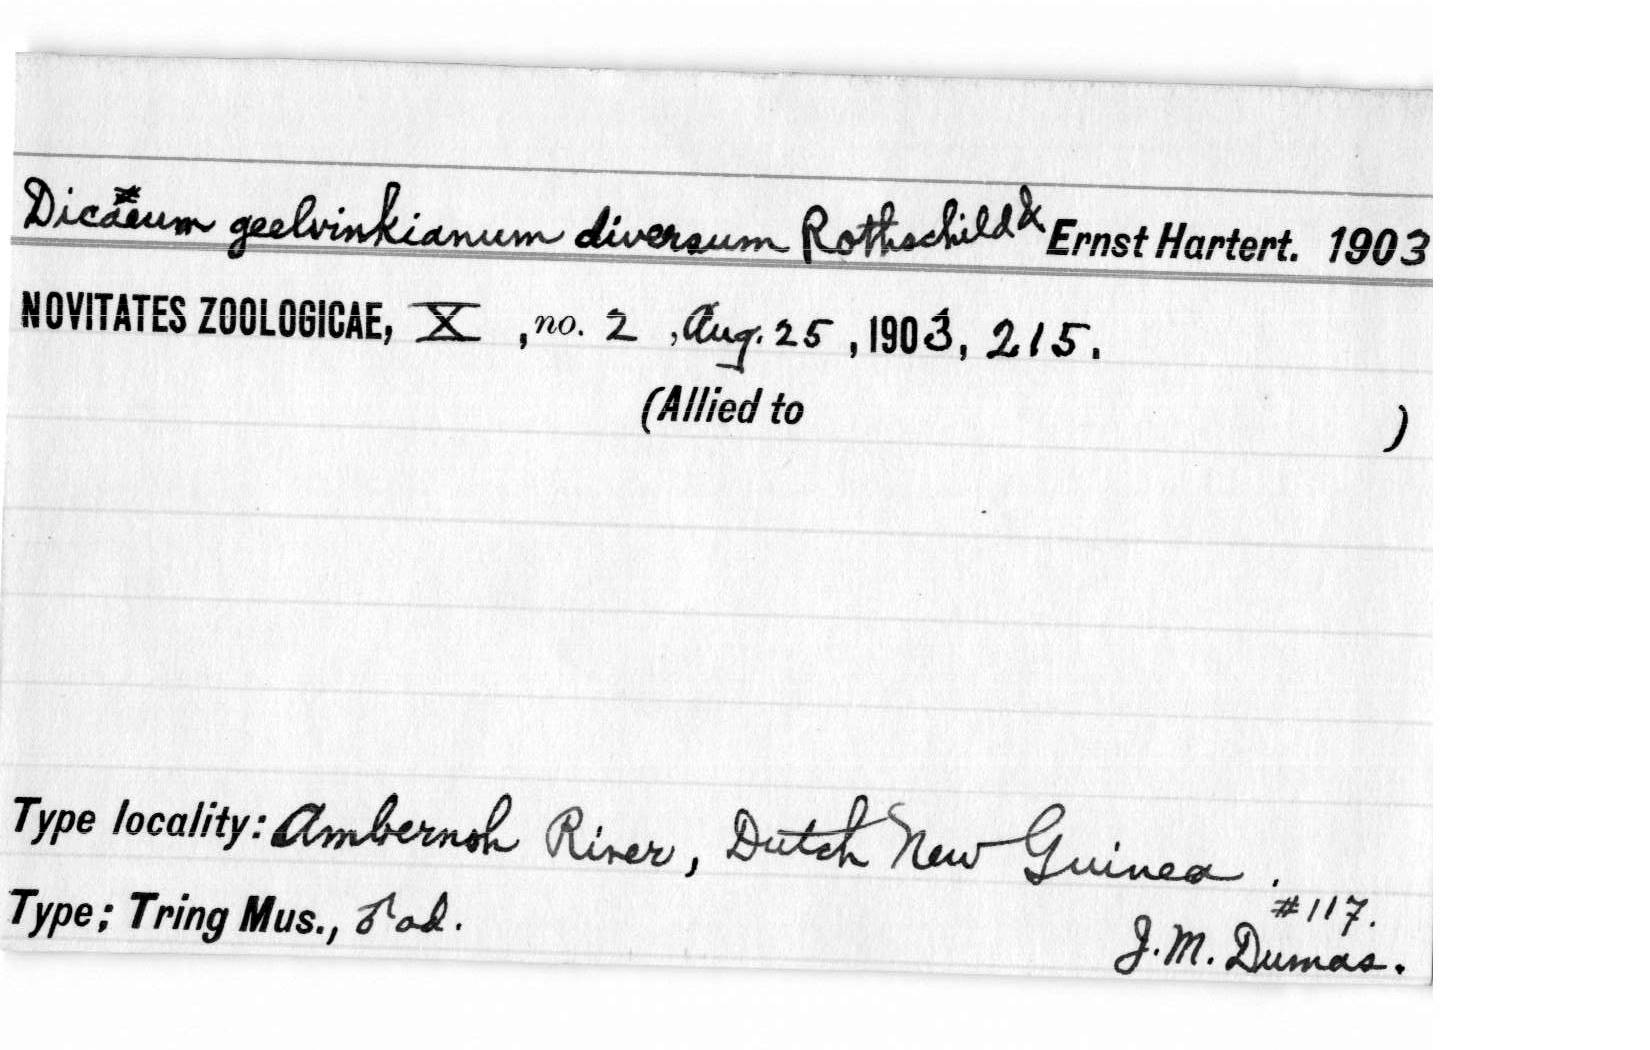 Dicaeum geelvinkianum diversum Rothschild & Ernst Hartert. 1903
NOVITATES ZOOLOGICAE, X, no. 2, Aug. 25, 1903, 215.
(Allied to )
Type locality: Ambernoh River, Dutch New Guinea.
#117.
Type; Tring Mus., ♂ ad.
J. M. Dumas.